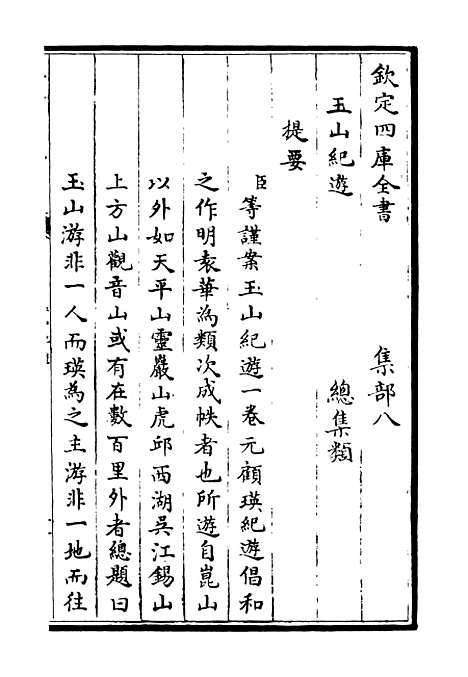 欽定四庫全書　集部八
玉山紀遊　總集類
提要
臣等謹案玉山紀遊一卷元顧瑛紀遊倡和
之作明袁華為類次成帙者也所遊自崑山
以外如天平山靈巖山虎邱西湖吳江錫山
上方山觀音山或有在數百里外者總題曰
玉山游非一人而瑛為之主游非一地而往